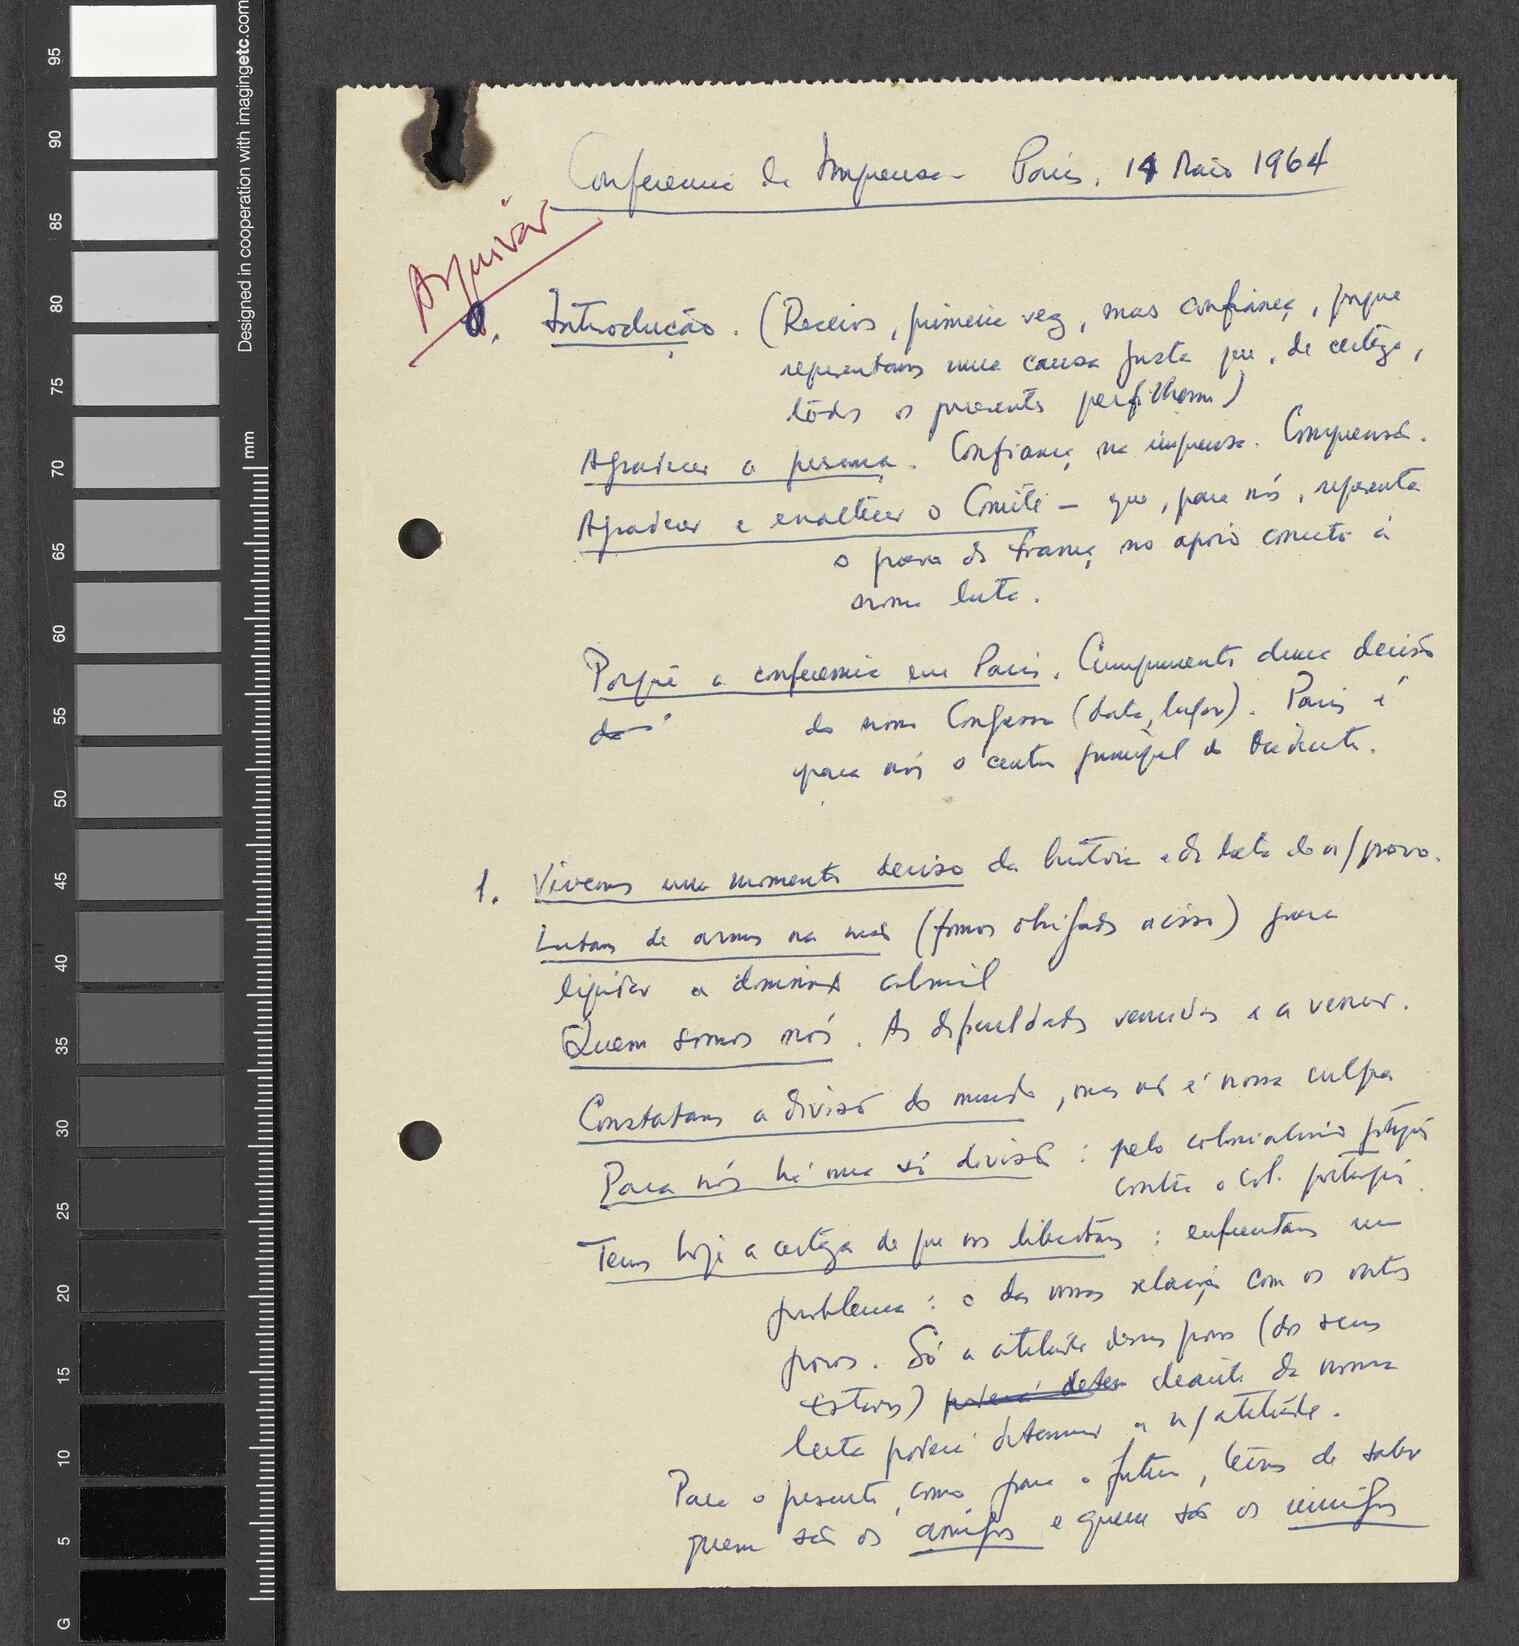 Conferencia de Imprensa - Paris, 14 Maio 1964
Arquivar
0. Introdução. (Receios, primeira vez, mas confiança, porque
representamos uma causa justa que, de certeza,
todos os presentes perfilham)
Agradecer a presença. Confiança na imprensa. Compreensão.
Agradecer e enaltecer o Comité - que, para nós, representa
o povo de França no apoio concreto à
nossa luta.
Porquê a conferencia em Paris. Cumprimento duma decisão
do nosso Congresso (data, lugar). Paris é
para nós o centro principal do Ocidente.
1. Vivemos um momento decisivo da história e da luta do n/povo.
Lutamos de armas na mão (fomos obrigados a isso) para
liquidar a dominação colonial
Quem somos nós. As dificuldades vencidas e a vencer.
Constatamos a divisão do mundo, mas não é nossa culpa
Para nós há uma só divisão: pelo colonialismo português
contra o col. português.
Temos hoje a certeza de que nos libertamos: enfrentamos um
problema: o das nossas relações com os outros
povos. Só a atitude desses povos (dos seus
Estados) poderá deter deante da nossa
luta poderá determinar a n/atitude.
Para o presente, como para o futuro, temos de saber
quem são os amigos e quem são os inimigos
Designed in cooperation with imagingetc.com
mm
95
90
85
80
75
70
65
60
55
50
45
40
35
30
25
20
15
10
5
G